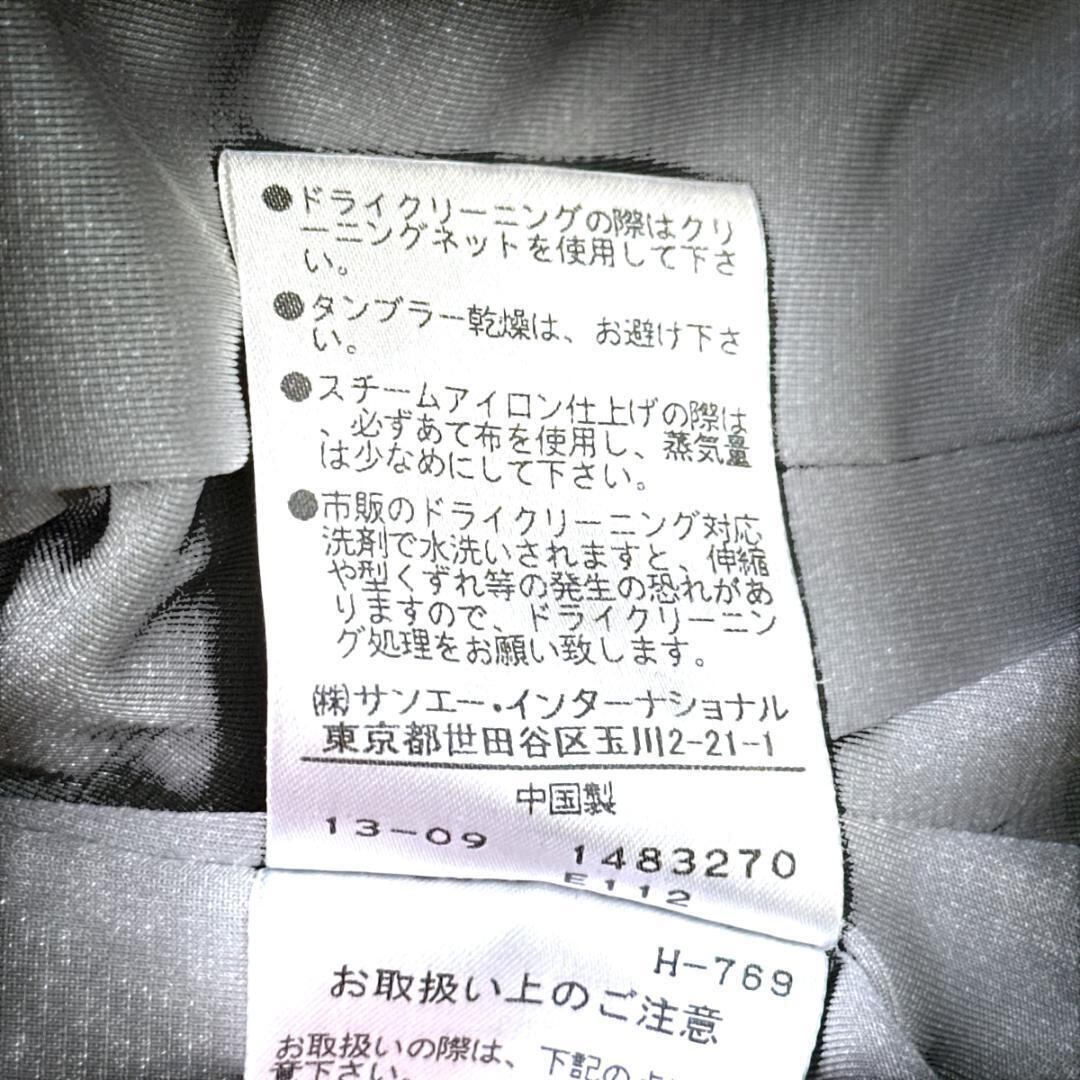 ●ドライクリーニングの際はクリ
ーニングネットを使用して下さ
い。
●タンブラー乾燥は、お避け下さ
い。
●スチームアイロン仕上げの際は
、必ずあて布を使用し、蒸気量
は少なめにして下さい。
●市販のドライクリーニング対応
洗剤で水洗いされますと、伸縮
や型くずれ等の発生の恐れがあ
りますので、ドライクリーニン
グ処理をお願い致します。
㈱サンエー・インターナショナル
東京都世田谷区玉川2-21-1
中国製
13-09
1483270
E112
H-769
お取扱い上のご注意
お取扱いの際は、下記の点
意下さい。